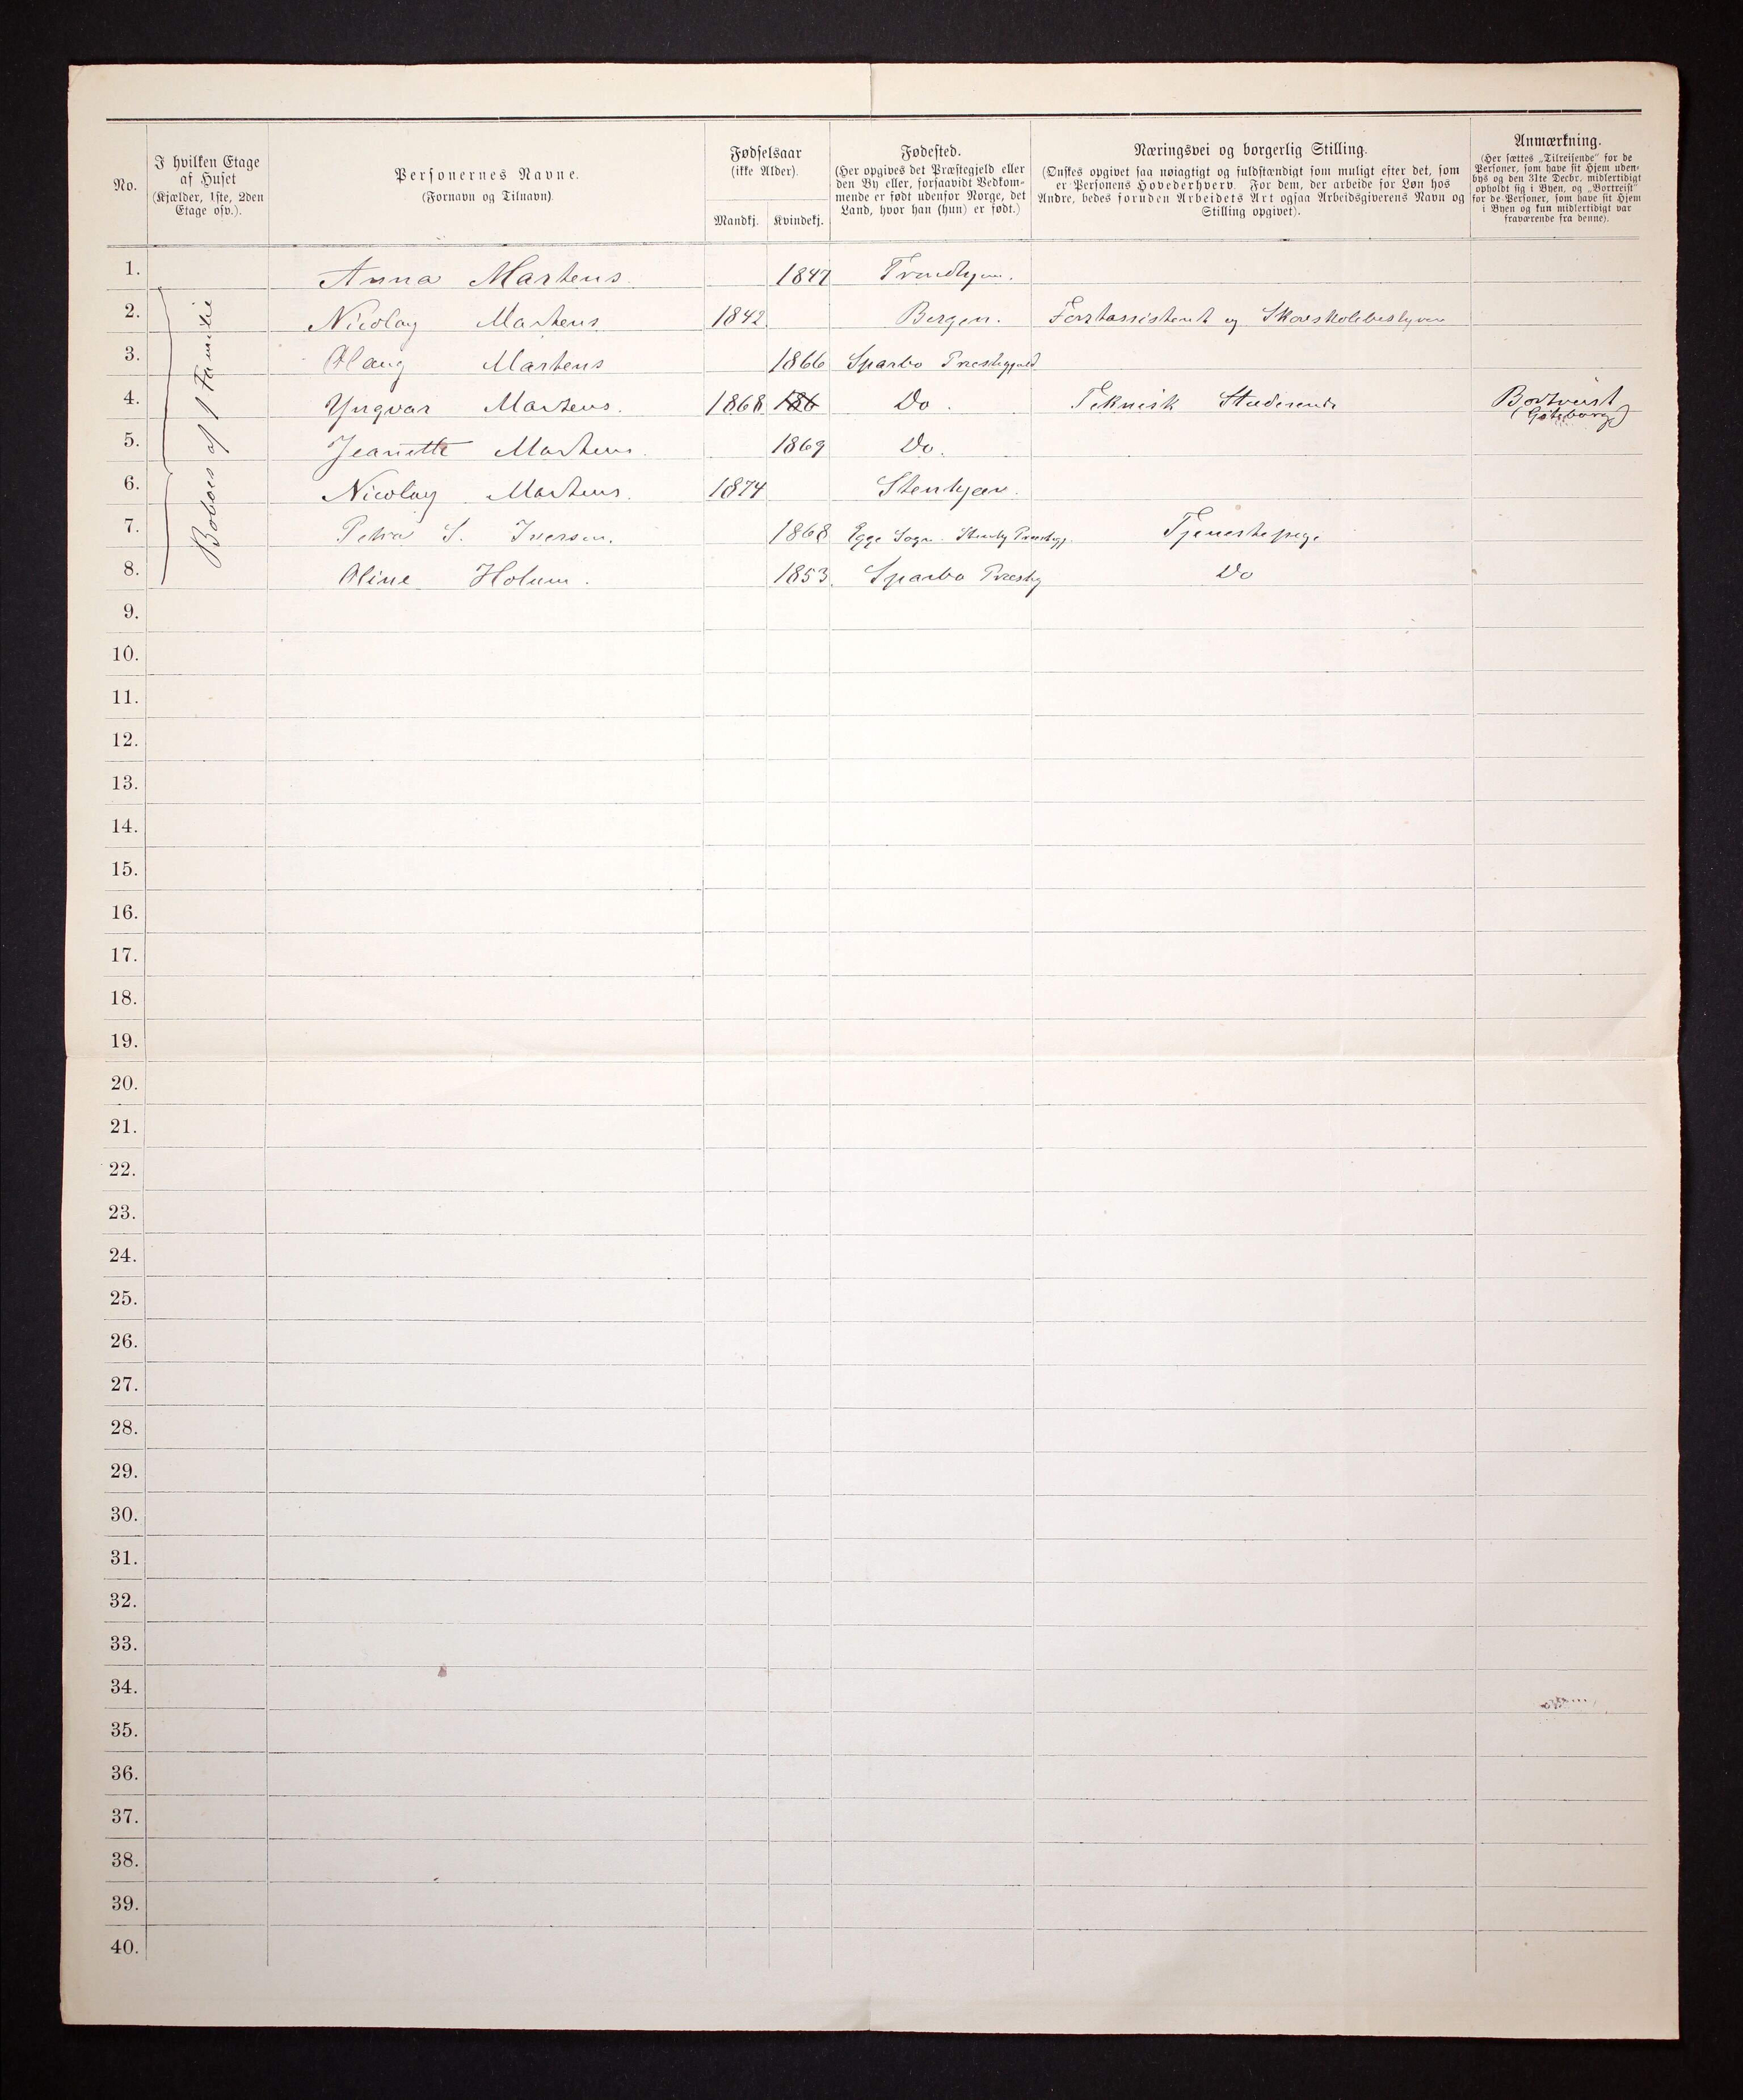 No.
I hvilken Etage af Huset (Kjælder, 1ste, 2den Etage osv.).
Personernes Navne. (Fornavn og Tilnavn).
Fødselsaar (ikke Alder).
Mandkj. Kvindekj.
Fødested. (Her opgives det Præstegjeld eller den By eller, forsaavidt Vedkommende er født udenfor Norge, det Land, hvor han (hun) er født.)
Næringsvei og borgerlig Stilling. (Ønskes opgivet saa nøiagtigt og fuldstændigt som muligt efter det, som er Personens Hovederhverv. For dem, der arbeide for Løn hos Andre, bedes foruden Arbeidets Art ogsaa Arbeidsgiverens Navn og Stilling opgivet).
Anmærkning. (Her sættes „Tilreisende“ for de Personer, som have sit Hjem udenbys og den 31te Decbr. midlertidigt opholdt sig i Byen, og „Bortreist“ for de Personer, som have sit Hjem i Byen og kun midlertidigt var fraværende fra denne).
Beboes af 1 Familie
1. Anna Martens 1847 Trondhjem.
2. Nicolay Martens 1842 Bergen. Forstassistent og Skovskolebestyrer
3. Olaug Martens 1866 Sparbo Præstegjæld
4. Yngvar Martens. 1868 186 Do. Teknisk Studerende Bortreist (Göteborg)
5. Jeanette Martens. 1869 Do.
6. Nicolay Martens. 1874 Stenkjær.
7. Petra S. Iversen. 1868 Egge Sogn. Præstegj. Tjenestepige
8. Oline Holum. 1853 Sparbo Præstgj Do
9.
10.
11.
12.
13.
14.
15.
16.
17.
18.
19.
20.
21.
22.
23.
24.
25.
26.
27.
28.
29.
30.
31.
32.
33.
34.
35.
36.
37.
38.
39.
40.